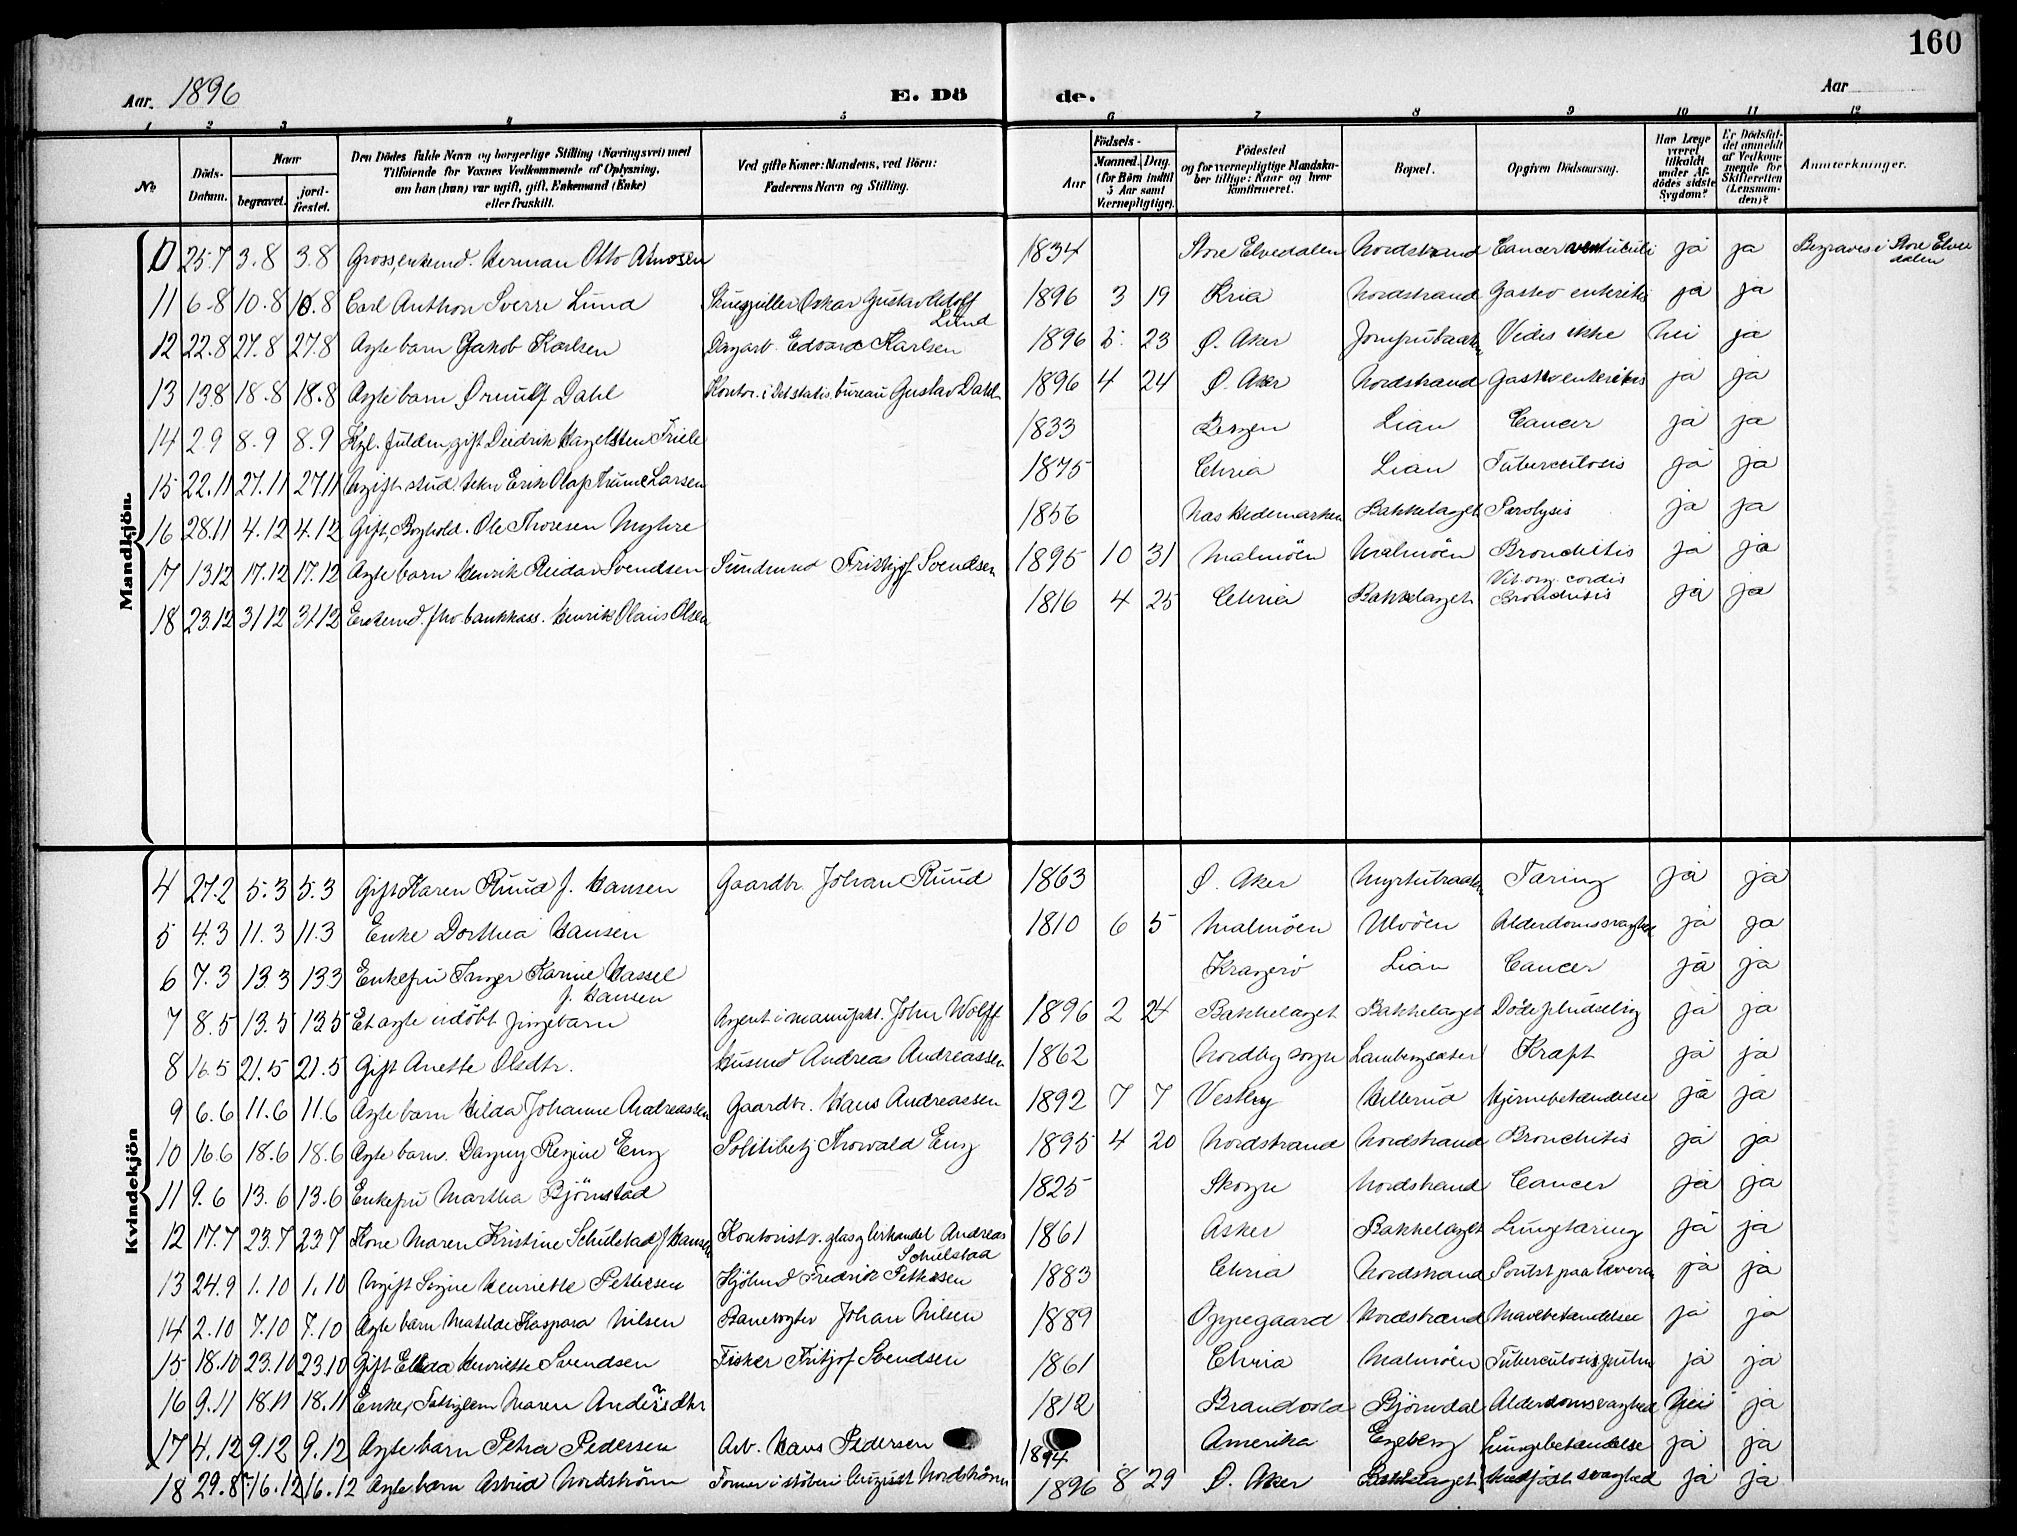 160
Aar. 1896 E. Dö de. Aar
1 2 3 4 5 6 7 8 9 10 11 12
No
Döds-Datum.
Naar
begravet.
jordfæstet.
Den Dödes fulde Navn og borgerlige Stilling (Næringsvei) med
Tilföiende for Voxnes Vedkommende af Oplysning,
om han (hun) var ugift, gift, Enkemand (Enke)
eller fraskilt.
Ved gifte Koner: Mandens, ved Börn:
Faderens Navn og Stilling.
Födsels-
Aar
Maaned. Dag.
(for Børn indtil
5 Aar samt
Værnepligtige).
Födested
og for værnepligtige Mandskaber tillige: Naar og hvor
konfirmeret.
Bopæl.
Opgiven Dödsaarsag.
Har Læge været tilkaldt under Afdödes sidste Sygdom?
Er Dödsfaldet anmeldt af Vedkommende for Skifteretten (Lensmanden)?
Anmærkninger.
Mandkjön.
10 25.7 3.8 3.8 Gross. enkemd. Herman Otto Amosen 1834 Store Elvedalen Nordstrand Cancer ventriculi ja ja Begraves i Store Elvedalen
11 6.8 10.8 10.8 Carl Anthon Sverre Lund Oskar Gustav Adolf Lund 1896 3 19 Kria Nordstrand Gastro enteritis ja ja
12 22.8 27.8 27.8 Ægte barn Jakob Karlsen Dagarb. Edvard Karlsen 1896 5 23 Ø. Aker Jomfrubraaten Vides ikke Nei ja
13 13.8 18.8 18.8 Ægte barn Ørnulf Dahl Kontor. i Det statis. bureau Gustav Dahl 1896 4 24 Ø. Aker Nordstrand Gastro enteritis ja ja
14 2.9 8.9 8.9 Kgl. fuldm. gift Diedrik Hagelsten Friele 1833 Bergen Lian Cancer ja ja
15 22.11 27.11 27.11 Ugift stud. tekn Erik Olaf Larsen 1875 Chria Lian Tuberculosis ja ja
16 28.11 4.12 4.12 Gift, Boghold. Ole Thoresen Myhre 1856 Nes Hedemarken Bækkelaget Paralysis ja ja
17 13.12 17.12 17.12 Ægte barn Henrik Reidar Svendsen Sundmand Frithjof Svendsen 1895 10 31 Malmöen Malmöen Bronchitis ja ja
18 23.12 31.12 31.12 Enkemd. fhv. bankkass. Henrik Olaus Olsen 1816 4 25 Chria Bækkelaget Vit. org. cordis Bronchitis ja ja
Kvindekjön
4 27.2 5.3 5.3 Gift Karen Ruud f. Hansen Gaardbr. Johan Ruud 1863 Ø. Aker Tæring ja ja
5 4.3 11.3 11.3 Enke Dorthea Hansen 1810 6 5 Malmöen Ulvöen Alderdomssvaghed ja ja
6 7.3 13.3 13.3 Enkefru Inger Karine Hassel f. Hansen Kragerö Lian Cancer ja ja
7 8.5 13.5 13.5 Et ægte udöbt pigebarn Agent i manufakt. John Wolff 1896 2 24 Bækkelaget Bækkelaget Döde pludselig ja ja
8 16.5 21.5 21.5 Gift Anette Olsdtr. Husmd Andreas Andreassen 1862 Nordby sogn Lambergsæter Kræft ja ja
9 6.6 11.6 11.6 Ægte barn Hilda Johanne Andreassen Gaardbr. Hans Andreassen 1892 7 7 Vestby Hellerud Hjernebetændelse ja ja
10 16.6 18.6 18.6 Ægte barn. Dagny Regine Eng Politibetj Thorvald Eng 1895 4 20 Nordstrand Nordstrand Bronchitis ja ja
11 9.6 13.6 13.6 Enkefru Martha Björnstad 1825 Skogn Nordstrand Cancer ja ja
12 17.7 23.7 23.7 Kone Maren Kristine Schulstad f Hansen Kontorist v. glashandel Andreas Schulstad 1861 Asker Bækkelaget Lungetæring ja ja
13 24.9 1.10 1.10 Ugift Signe Henriette Pettersen Kjöbmd Fredrik Pettersen 1883 Chria Nordstrand paa leveren ja ja
14 2.10 7.10 7.10 Ægte barn Matilde Kaspara Nilsen Banevogter Johan Nilsen 1889 Oppegaard Nordstrand Mavebetændelse ja ja
15 18.10 23.10 23.10 Gift Elida Henriette Svendsen Fisker Fritjof Svendsen 1861 Chria Malmöen Tuberculosis pulm ja ja
16 9.11 18.11 18.11 Enke, Fattiglem Maren Andersdtr 1812 Brandvold Björndal Alderdomssvaghed Nei ja
17 4.12 9.12 9.12 Ægte barn Petra Pedersen Arb. Hans Pedersen 1894 Amerika Engeberg Lungebetændelse ja ja
18 29.8 16.12 16.12 Ægte barn Astrid Nordström Former i støberi August Nordström 1896 8 29 Ø. Aker Bækkelaget Medfødt svaghed ja ja